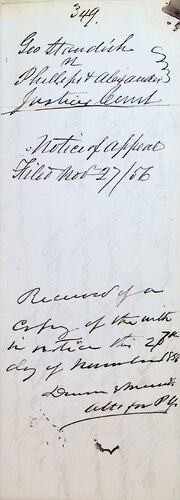 349.
Geo Standish
vs
Phillips & Alexander
Justices Court
Notice of Appeal
Filed Nov 27/56
Received of a
copy of the with
in notice this 27th
day of November 1856
Attys for Plff